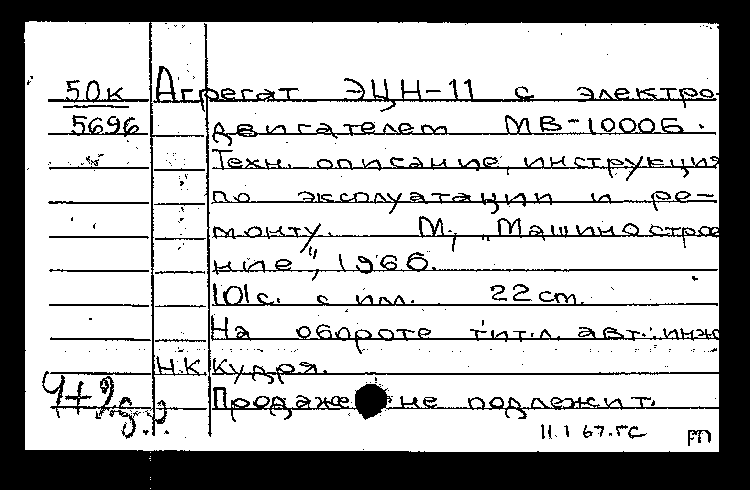 50к Агрегат ЭЦН-11 с электро-
5696 двигателем МВ-1000Б.
Техн. описание, инструкция
по эксплуатации и ре-
монту. М., "Машинострое
ние", 1966.
101с. с илл. 22 cm.
На обороте тит.л. авт.: инж
Н.К. Кудря.
Продаже не подлежит.
11.1 67.ГС